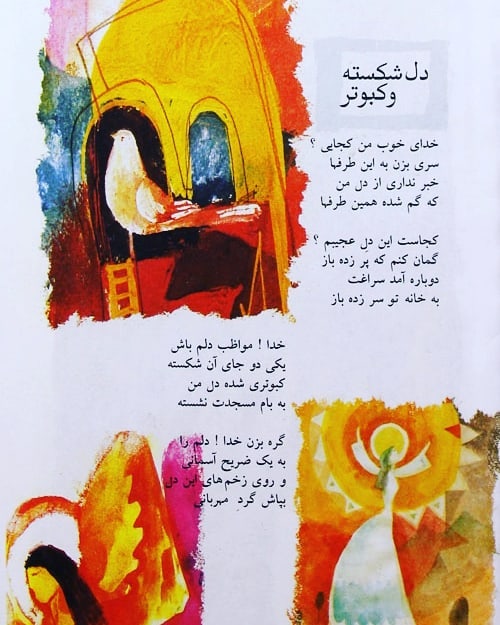 دل شکسته
و کبوتر
خدای خوب من کجایی ؟
سری بزن به این طرفها
خبر نداری از دل من
که گم شده همین طرفها
کجاست این دل عجیبم ؟
گمان کنم که پَر زده باز
دوباره آمد سراغت
به خانه تو سر زده باز
خدا ! مواظب دلم باش
یکی دو جای آن شکسته
کبوتری شده دل من
به بام مسجدت نشسته
گره بزن خدا ! دلم را
به یک ضریح آسمانی
و روی زخم‌های این دل
بپاش گردِ مهربانی